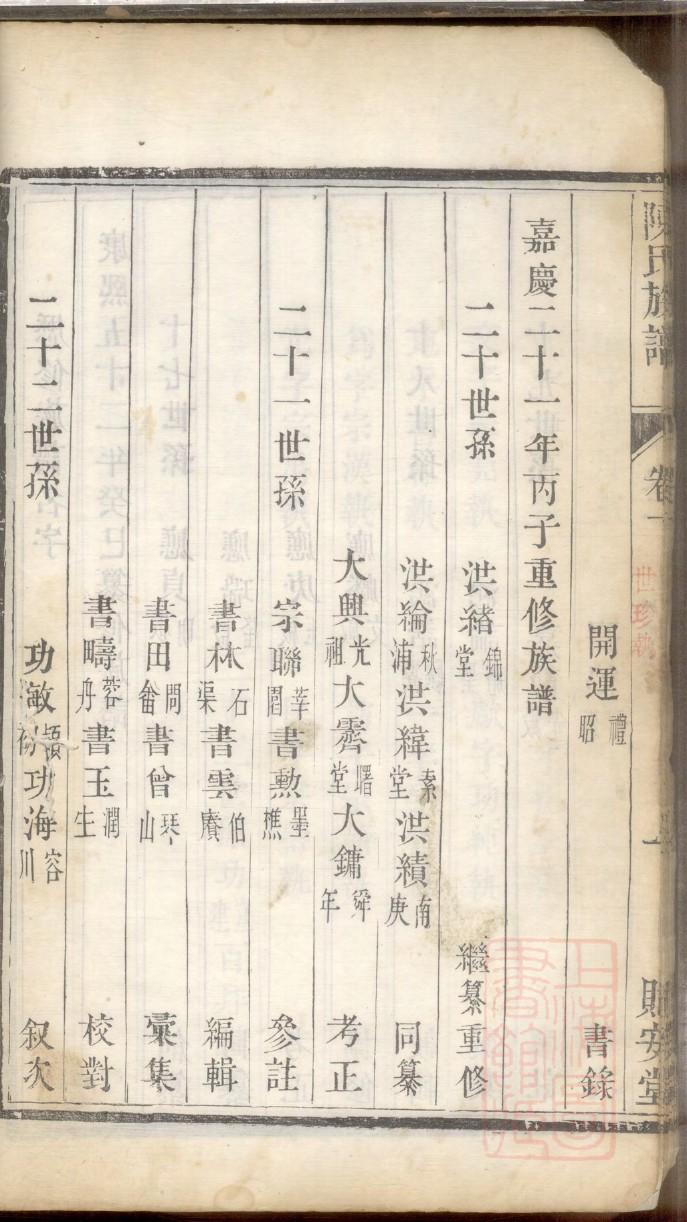 陳氏族譜 卷一 世珍執 貽安堂
開運禮昭 書錄
嘉慶二十一年丙子重修族譜
二十世孫 洪緒錦堂 繼纂重修
洪綸秋浦 洪緯素堂 洪績南庚 同纂
大興光祖 大霽曙堂 大鏞舜年 考正
二十一世孫 宗聯莘閣 書勲墨樵 參註
書林石渠 書雲伯賡 編輯
書田問畬 書曾琴山 彙集
書疇蓉舟 書玉潤生 校對
二十二世孫 功敏 功海容川 叙次